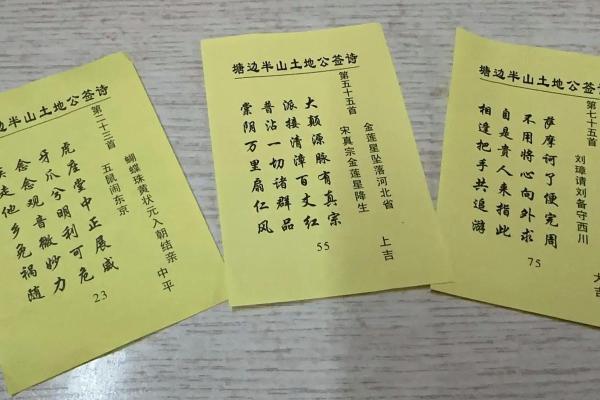 边半山土地公签诗
第二十三首
蝴蝶珠黄状元入朝结亲 中平
五鼠闹东京
虎座堂中正展威
牙爪兮明利可危
念念观音微妙力
走他乡免祸随
23
塘边半山土地公签诗
第五十五首
金莲星坠落河北省 上吉
宋真宗金莲星降生
大颠源脉有真宗
派接清漳百丈红
普沾一切诸群品
棠阴万里扇仁风
55
塘边半山土地公签
第七十五首
刘璋请刘备守西川
大吉
萨摩诃了便完周
不用将心向外求
自是贵人来指此
相逢把手共追游
75